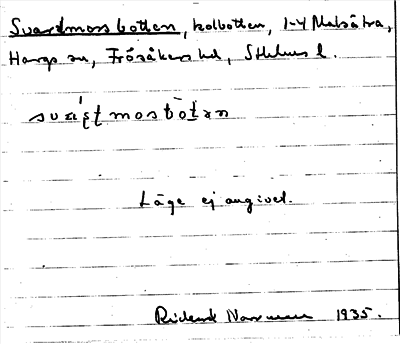 Svardmossbotten, kolbotten, 1-4 Malsätra,
Hargs sn, Frösåkers hd, Sthlms l.
Läge ej angivet.
Rickard Norrman 1935.